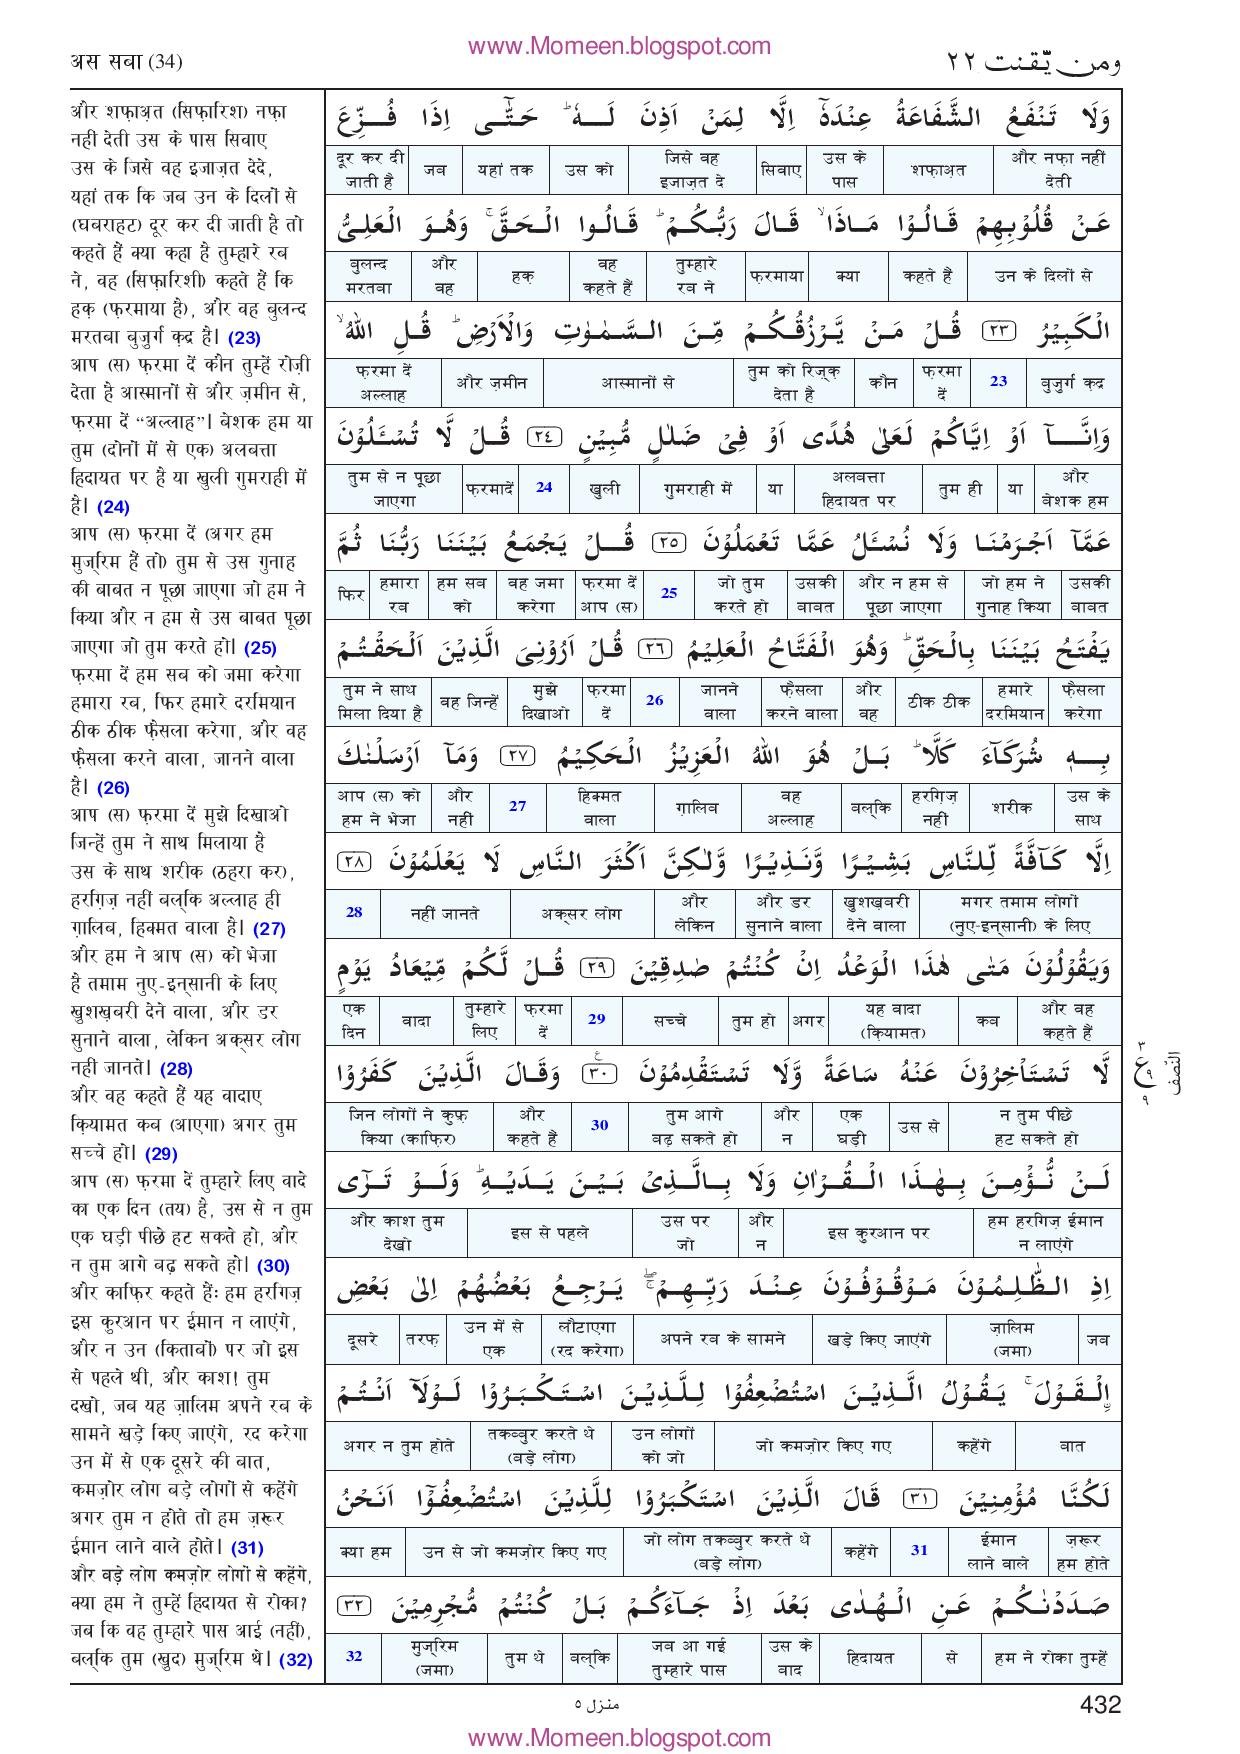 www.Momeen.blogspot.com
अस सबा (34)
ومن یّقنت ٢٢
और शफ़ाअ़त (सिफ़ारिश) नफ़ा
नहीं देती उस के पास सिवाए
उस के जिसे वह इजाज़त देदे,
यहां तक कि जब उन के दिलों से
(घबराहट) दूर कर दी जाती है तो
कहते हैं क्या कहा है तुम्हारे रब
ने, वह (सिफ़ारिशी) कहते हैं कि
हक़ (फ़रमाया है), और वह बुलन्द
मरतबा बुज़ुर्ग क़द्र है। (23)
आप (स) फ़रमा दें कौन तुम्हें रोज़ी
देता है आस्मानों से और ज़मीन से,
फ़रमा दें “अल्लाह”। बेशक हम या
तुम (दोनों में से एक) अलबत्ता
हिदायत पर है या खुली गुमराही में
है। (24)
आप (स) फ़रमा दें (अगर हम
मुज्रिम हैं तो) तुम से उस गुनाह
की बाबत न पूछा जाएगा जो हम ने
किया और न हम से उस बाबत पूछा
जाएगा जो तुम करते हो। (25)
फ़रमा दें हम सब को जमा करेगा
हमारा रब, फिर हमारे दरमियान
ठीक ठीक फ़ैसला करेगा, और वह
फ़ैसला करने वाला, जानने वाला
है। (26)
आप (स) फ़रमा दें मुझे दिखाओ
जिन्हें तुम ने साथ मिलाया है
उस के साथ शरीक (ठहरा कर),
हरगिज़ नहीं बल्कि अल्लाह ही
ग़ालिब, हिक्मत वाला है। (27)
और हम ने आप (स) को भेजा
है तमाम नुए-इन्सानी के लिए
ख़ुशख़बरी देने वाला, और डर
सुनाने वाला, लेकिन अक्सर लोग
नहीं जानते। (28)
और वह कहते हैं यह वादाए
क़ियामत कब (आएगा) अगर तुम
सच्चे हो। (29)
आप (स) फ़रमा दें तुम्हारे लिए वादे
का एक दिन (तय) है, उस से न तुम
एक घड़ी पीछे हट सकते हो, और
न तुम आगे बढ़ सकते हो। (30)
और काफ़िर कहते हैं: हम हरगिज़
इस क़ुरआन पर ईमान न लाएंगे,
और न उन (किताबों) पर जो इस
से पहले थी, और काश! तुम
देखो, जब यह ज़ालिम अपने रब के
सामने खड़े किए जाएंगे, रद करेगा
उन में से एक दूसरे की बात,
कमज़ोर लोग बड़े लोगों से कहेंगे
अगर तुम न होते तो हम ज़रूर
ईमान लाने वाले होते। (31)
और बड़े लोग कमज़ोर लोगों से कहेंगे,
क्या हम ने तुम्हें हिदायत से रोका?
जब कि वह तुम्हारे पास आई (नहीं),
बल्कि तुम (ख़ुद) मुज्रिम थे। (32)
وَلَا تَنْفَعُ الشَّفَاعَةُ عِنْدَهٗٓ اِلَّا لِمَنْ اَذِنَ لَـهٗ ؕ حَتّٰٓى اِذَا فُـزِّعَ
और नफ़ा नहीं देती शफ़ाअ़त उस के पास सिवाए जिसे वह इजाज़त दे उस को यहां तक जब दूर कर दी जाती है
عَنْ قُلُوْبِهِمْ قَالُوْا مَاذَا ۙ قَالَ رَبُّكُمْ ؕ قَالُوا الْحَقَّ ۚ وَهُوَ الْعَلِىُّ
उन के दिलों से कहते हैं क्या फ़रमाया तुम्हारे रब ने वह कहते हैं हक़ और वह बुलन्द मरतबा
الْكَبِيْرُ ٢٣ قُلْ مَنْ يَّرْزُقُكُمْ مِّنَ السَّمٰوٰتِ وَالْاَرْضِ ؕ قُلِ اللّٰهُ ۙ
बुज़ुर्ग क़द्र 23 फ़रमा दें कौन तुम को रिज़्क़ देता है आस्मानों से और ज़मीन फ़रमा दें अल्लाह
وَاِنَّـآ اَوْ اِيَّاكُمْ لَعَلٰى هُدًى اَوْ فِىْ ضَلٰلٍ مُّبِيْنٍ ٢٤ قُلْ لَّا تُسْـَٔلُوْنَ
और बेशक हम या तुम ही अलबत्ता हिदायत पर या गुमराही में खुली 24 फ़रमादें तुम से न पूछा जाएगा
عَمَّآ اَجْرَمْنَا وَلَا نُسْـَٔلُ عَمَّا تَعْمَلُوْنَ ٢٥ قُـلْ يَجْمَعُ بَيْنَنَا رَبُّنَا ثُمَّ
उसकी बाबत जो हम ने गुनाह किया और न हम से पूछा जाएगा उसकी बाबत जो तुम करते हो 25 फ़रमा दें आप (स) वह जमा करेगा हम सब को हमारा रब फिर
يَفْتَحُ بَيْنَنَا بِالْحَقِّ ؕ وَهُوَ الْفَتَّاحُ الْعَلِيْمُ ٢٦ قُلْ اَرُوْنِىَ الَّذِيْنَ اَلْحَقْتُمْ
फ़ैसला करेगा हमारे दरमियान ठीक ठीक और वह फ़ैसला करने वाला जानने वाला 26 फ़रमा दें मुझे दिखाओ वह जिन्हें तुम ने साथ मिला दिया है
بِـهٖ شُرَكَآءَ كَلَّا ؕ بَـلْ هُوَ اللّٰهُ الْعَزِيْزُ الْحَكِيْمُ ٢٧ وَمَآ اَرْسَلْنٰكَ
उस के साथ शरीक हरगिज़ नहीं बल्कि वह अल्लाह ग़ालिब हिक्मत वाला 27 और नहीं आप (स) को हम ने भेजा
اِلَّا كَآفَّةً لِّلنَّاسِ بَشِيْرًا وَّنَذِيْرًا وَّلٰكِنَّ اَكْثَرَ النَّاسِ لَا يَعْلَمُوْنَ ٢٨
मगर तमाम लोगों (नुए-इन्सानी) के लिए ख़ुशख़बरी देने वाला और डर सुनाने वाला और लेकिन अक्सर लोग नहीं जानते 28
وَيَقُوْلُوْنَ مَتٰى هٰذَا الْوَعْدُ اِنْ كُنْتُمْ صٰدِقِيْنَ ٢٩ قُلْ لَّكُمْ مِّيْعَادُ يَوْمٍ
और वह कहते हैं कब यह वादा (क़ियामत) अगर तुम हो सच्चे 29 फ़रमा दें तुम्हारे लिए वादा एक दिन
لَّا تَسْتَاْخِرُوْنَ عَنْهُ سَاعَةً وَّلَا تَسْتَقْدِمُوْنَ ٣٠ وَقَالَ الَّذِيْنَ كَفَرُوْا
न तुम पीछे हट सकते हो उस से एक घड़ी और न तुम आगे बढ़ सकते हो 30 और कहते हैं जिन लोगों ने कुफ़्र किया (काफ़िर)
٣
ع ٩
٩
النصف
لَـنْ نُّؤْمِنَ بِهٰذَا الْقُرْاٰنِ وَلَا بِالَّذِىْ بَيْـنَ يَدَيْهِ ؕ وَلَـوْ تَـرٰٓى
हम हरगिज़ ईमान न लाएंगे इस क़ुरआन पर और न उस पर जो इस से पहले और काश तुम देखो
اِذِ الظّٰلِمُوْنَ مَوْقُوْفُوْنَ عِنْدَ رَبِّهِمْ ۚۖ يَـرْجِـعُ بَعْضُهُمْ اِلٰى بَعْضِ
जब ज़ालिम (जमा) खड़े किए जाएंगे अपने रब के सामने लौटाएगा (रद करेगा) उन में से एक तरफ़ दूसरे
اِۨلْقَوْلَ ۚ يَقُوْلُ الَّذِيْنَ اسْتُضْعِفُوْا لِلَّذِيْنَ اسْتَكْبَرُوْا لَوْلَآ اَنْتُمْ
बात कहेंगे जो कमज़ोर किए गए उन लोगों को जो तकब्बुर करते थे (बड़े लोग) अगर न तुम होते
لَكُنَّا مُؤْمِنِيْنَ ٣١ قَالَ الَّذِيْنَ اسْتَكْبَرُوْا لِلَّذِيْنَ اسْتُضْعِفُوْٓا اَنَحْنُ
ज़रूर हम होते ईमान लाने वाले 31 कहेंगे जो लोग तकब्बुर करते थे (बड़े लोग) उन से जो कमज़ोर किए गए क्या हम
صَدَدْنٰكُمْ عَنِ الْهُدٰى بَعْدَ اِذْ جَآءَكُمْ بَلْ كُنْتُمْ مُّجْرِمِيْنَ ٣٢
हम ने रोका तुम्हें से हिदायत उस के बाद जब आ गई तुम्हारे पास बल्कि तुम थे मुज्रिम (जमा) 32
منزل ٥
432
www.Momeen.blogspot.com